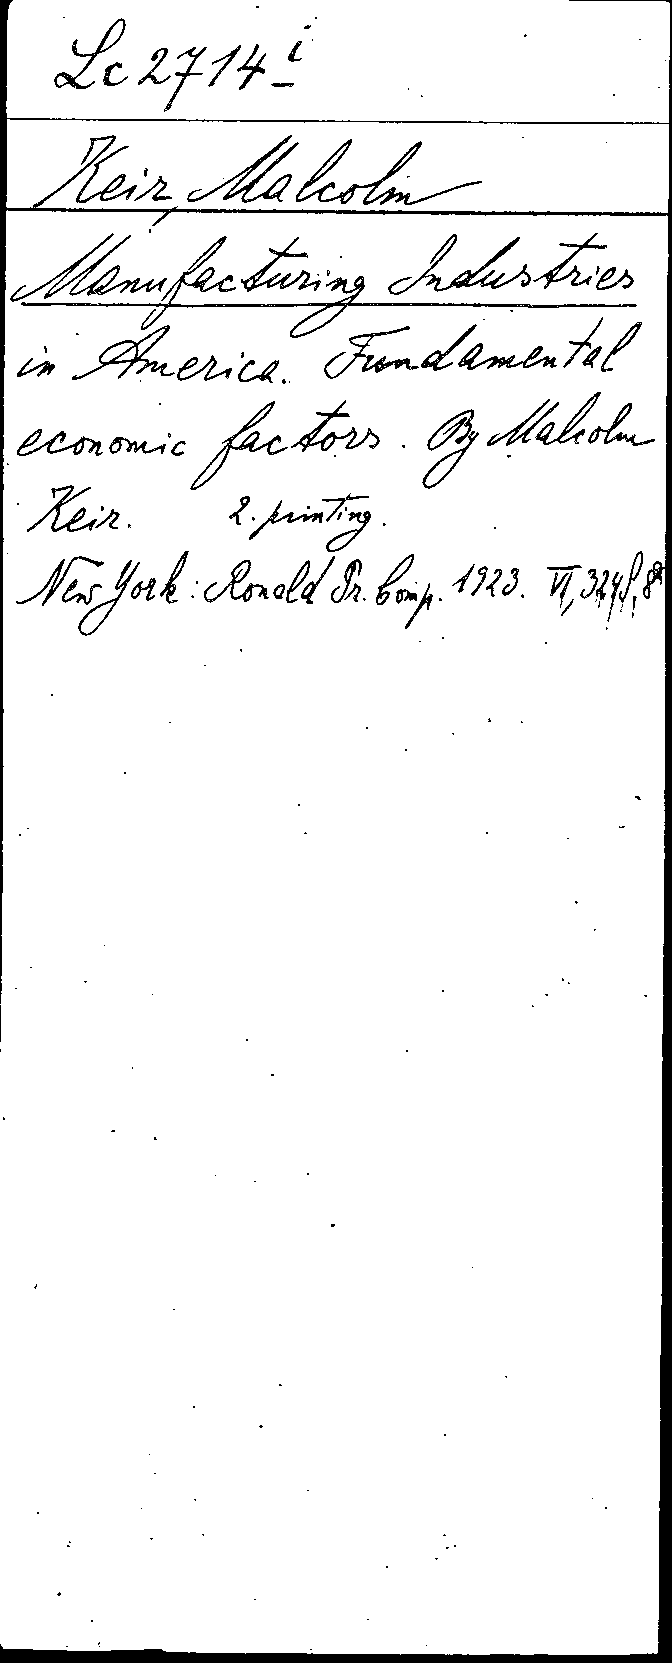 Lc 2714 i
Keir, Malcolm
Manufacturing Industries
in America. Fundamental
economic factors. By Malcolm
Keir. 2. printing.
New York: Ronald Pr. Comp. 1923. VI, 324 S. 8°